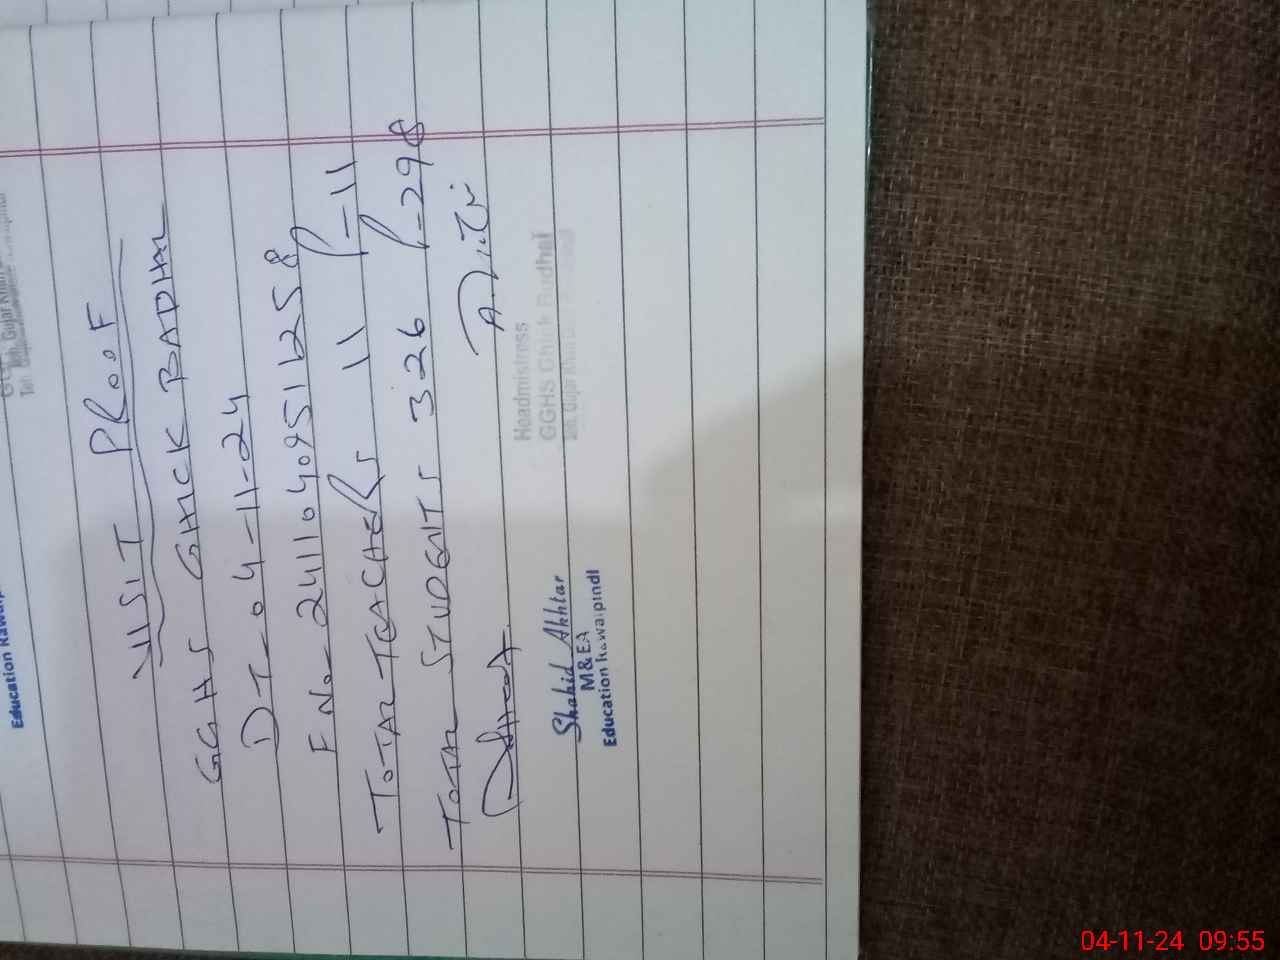 Education Rawalp
Teh. Gujar Khan
VISIT PROOF
GGHS GHICK BADHAL
DT-04-11-24
F No-2411040951258
TOTAL TEACHERS 11 P-11
TOTAL STUDENTS 326 P-298
Shahid Akhtar
M & EA
Education Rawalpindi
Headmistress
GGHS Ghick Budhal
Teh. Gujar Khan
04-11-24 09:55